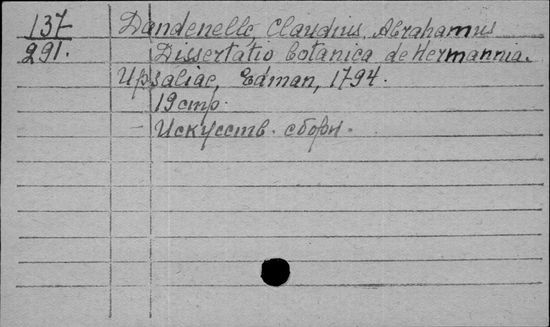 137 Dandenelle, Claudius, Abrahamus
291. Dissertatio botanica de Hermannia.
Upsaliae, Edman, 1794.
19 стр.
– Искусств. сборн.